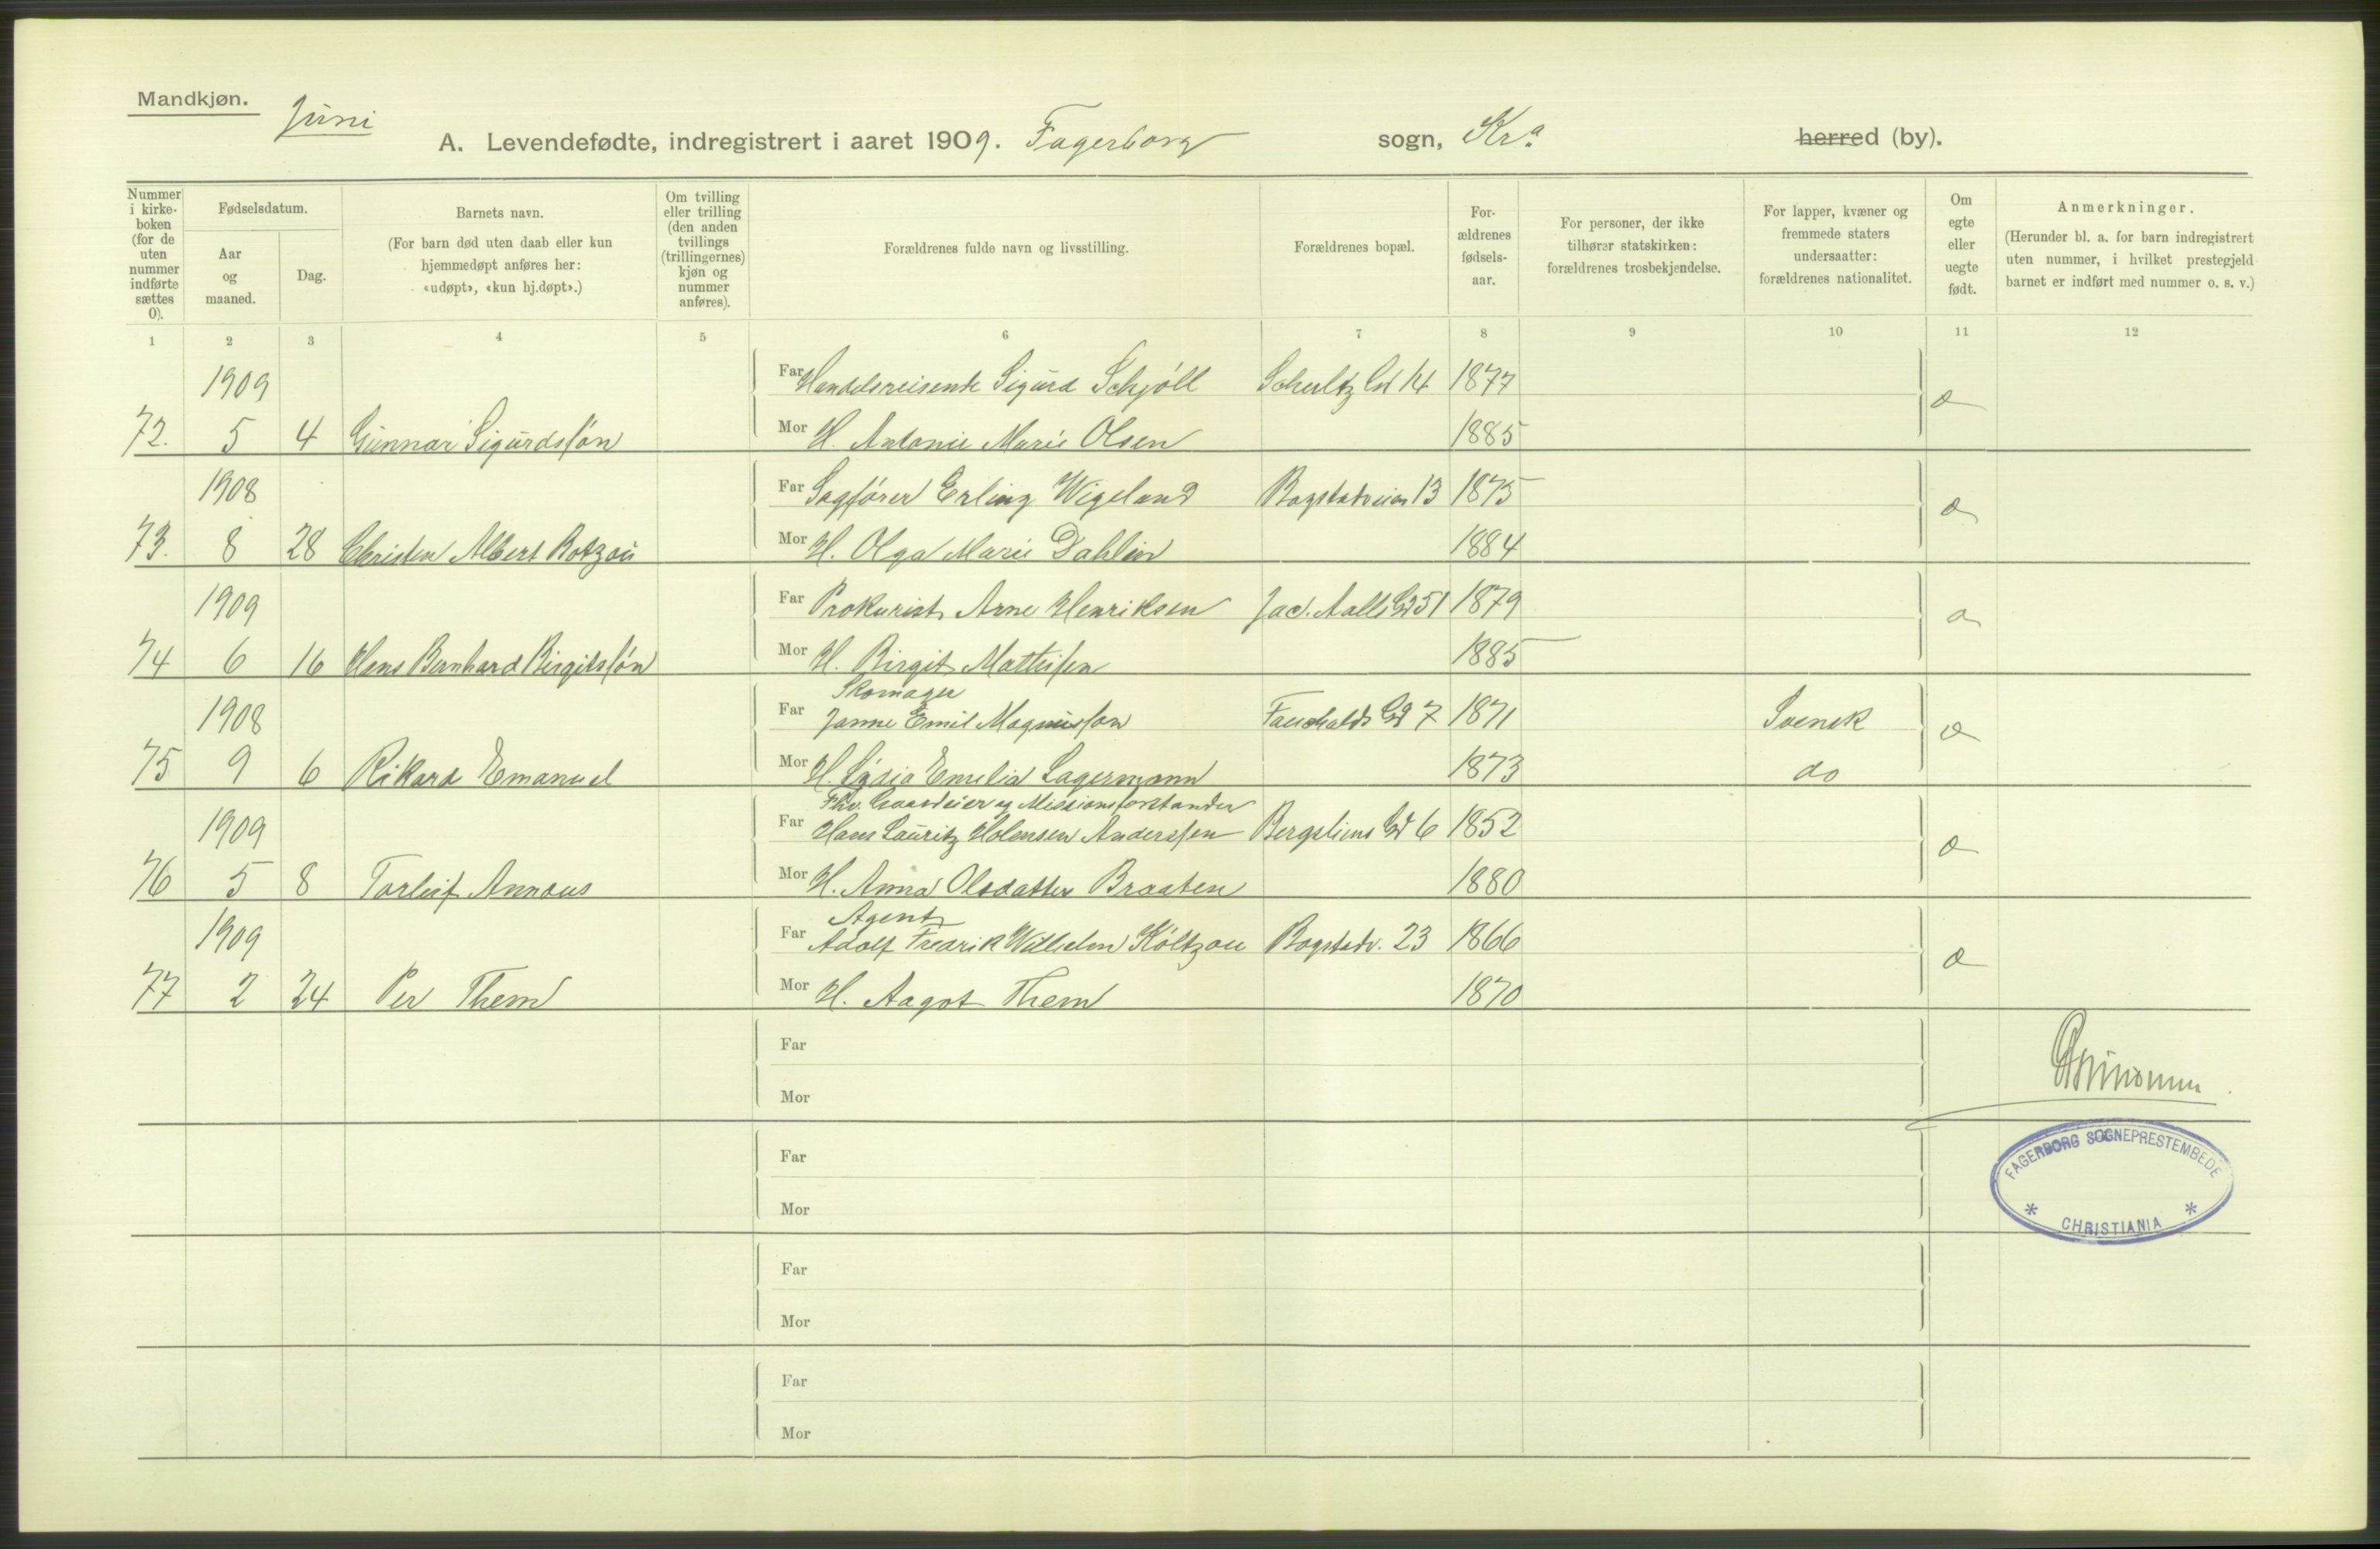 Mandkjøn.
Juni
A. Levendefødte, indregistrert i aaret 1909. Fagerborg sogn, Kra. herred (by).
Nummer i kirke-boken (for de uten nummer indførte sættes 0).
Fødselsdatum.
Aar og maaned.
Dag.
Barnets navn.
(For barn død uten daab eller kun hjemmedøpt anføres her: «udøpt», «kun hj.døpt».)
Om tvilling eller trilling (den anden tvillings (trillingernes) kjøn og nummer anføres).
Forældrenes fulde navn og livsstilling.
Forældrenes bopæl.
For-ældrenes fødsels-aar.
For personer, der ikke tilhører statskirken: forældrenes trosbekjendelse.
For lapper, kvæner og fremmede staters undersaatter: forældrenes nationalitet.
Om egte eller uegte født.
Anmerkninger.
(Herunder bl. a. for barn indregistrert uten nummer, i hvilket prestegjeld barnet er indført med nummer o. s. v.)
1 2 3 4 5 6 7 8 9 10 11 12
1909 Far Handelsreisende Sigurd Schjöll Schultz Gd 14 1877
72. 5 4 Gunnar Sigurdsøn Mor H. Antonie Marie Olsen 1885
1908 Far Sagfører Erling Wigeland Bogstadveien 13 1875
73. 8 28 Christen Albert Botzou Mor H. Olga Marie Dahlin 1884
1909 Far Prokurist Arne Henriksen Jac. Aalls Gd 51 1879
74 6 16 Hans Bernhard Birgitsøn Mor H. Birgit Mathisen 1885
Skomager
1908 Far Janne Emil Magnusson Fauchalds Gd 7 1871 Svensk
75 9 6 Rikard Emanuel Mor H. Emelia Lagermann 1873 do
Fhv. Gaardeier og Missionsforstander
1909 Far Hans Lauritz Holensen Anderssen Bergsliens Gd 6 1852
76 5 8 Torleif Annæus Mor H. Anna Olsdatter Braaten 1880
Agent
1909 Far Adolf Fredrik Wilhelm Költzou Bogstadv. 23 1866
77 2 24 Per Them Mor H. Aagot Them 1870
Far
Mor
Far
Mor
FAGERBORG SOGNEPRESTEMBEDE
* CHRISTIANIA *
Far
Mor
Far
Mor